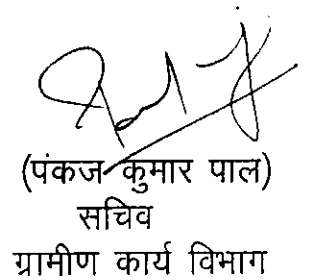 (पंकज कुमार पाल)
सचिव
ग्रामीण कार्य विभाग